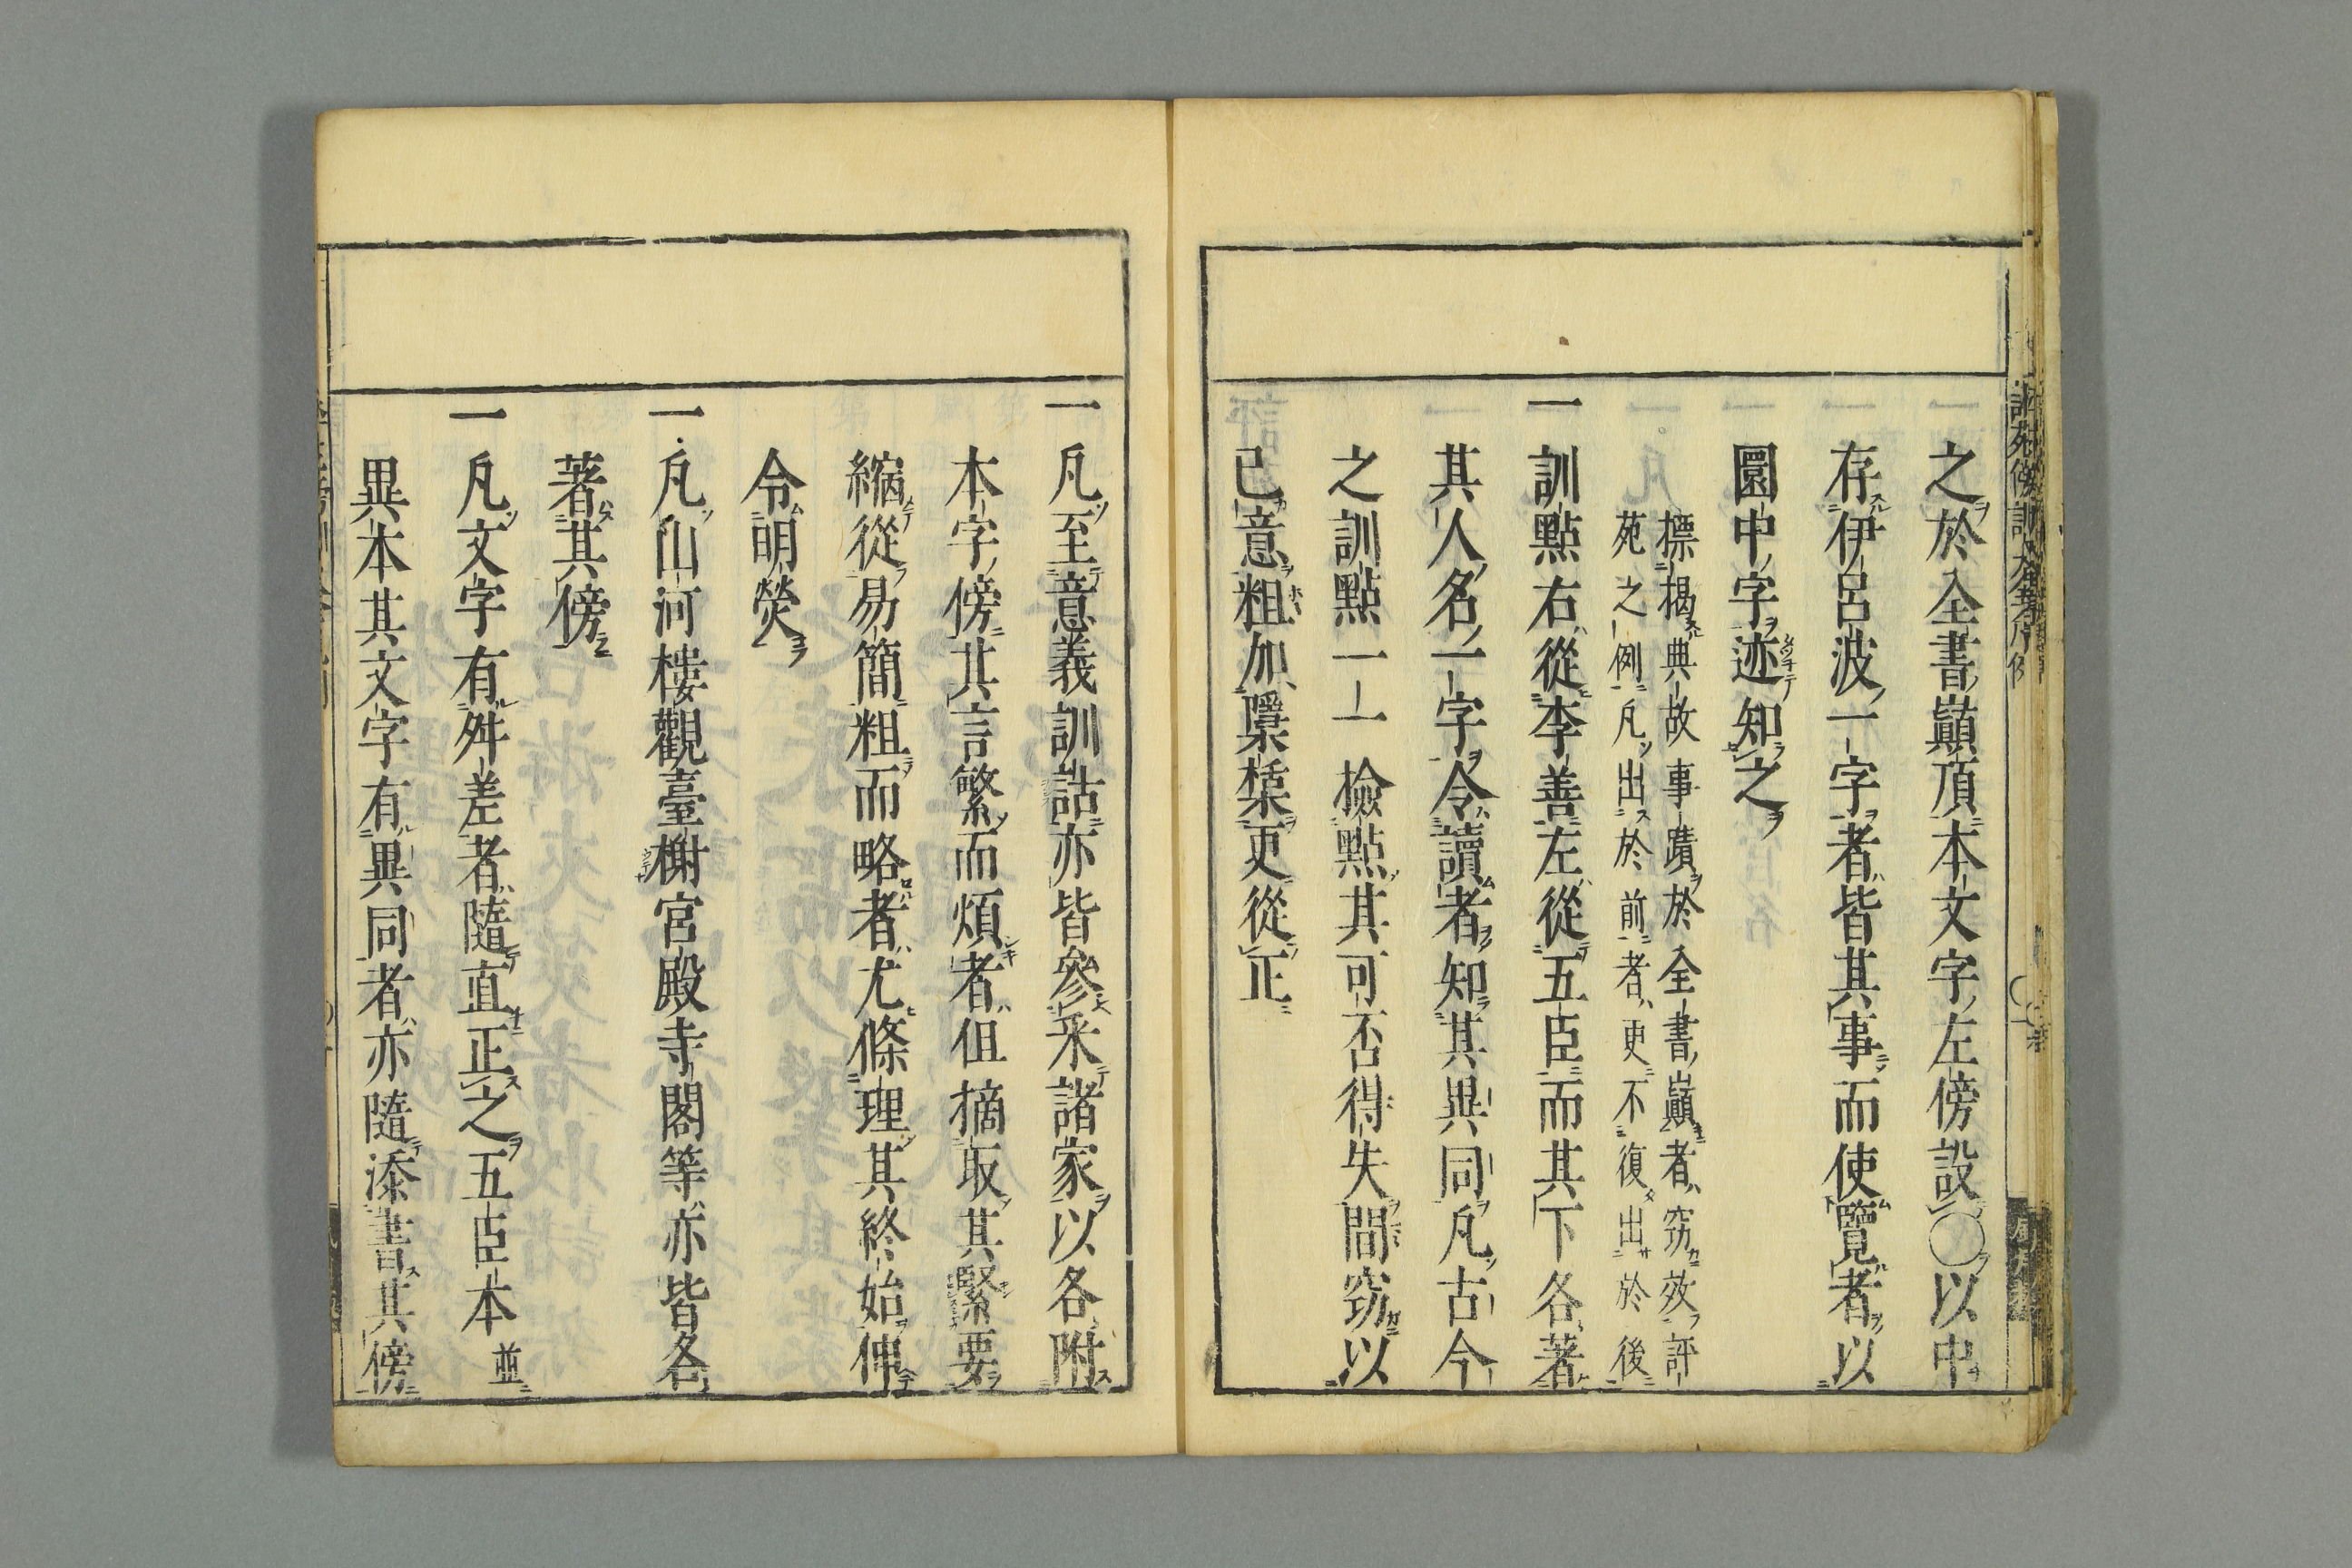 之於全書巓頂本文字左傍設〇以中
存伊呂波一字者皆其事而使覽者以
圜中字迹知之
標揭典故事蹟於全書巓者窃效評
苑之例凡出於前者更不復出於後
一訓點右從李善左從五臣而其下各著
其人名一字令讀者知其異同凡古今
之訓點一一檢點其可否得失間窃以
己意粗加檃栝更從正
一凡至意義訓詁亦皆參采諸家以各附
本字傍其言繁而煩者但摘取其緊要
縮從易簡粗而略者尤條理其終始伸
令明熒
一凡山河樓觀臺榭宮殿寺閣等亦皆各
著其傍
一凡文字有舛差者隨直正之五臣本並
異本其文字有異同者亦隨添書其傍